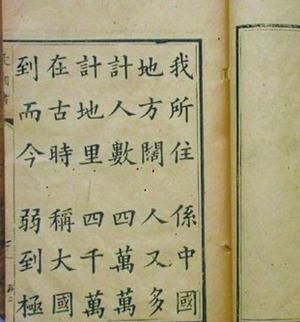 我所住 係中國
地方闊 人又多
計人數 四萬萬
計地里 四千萬
在古時 稱大國
到而今 弱到極